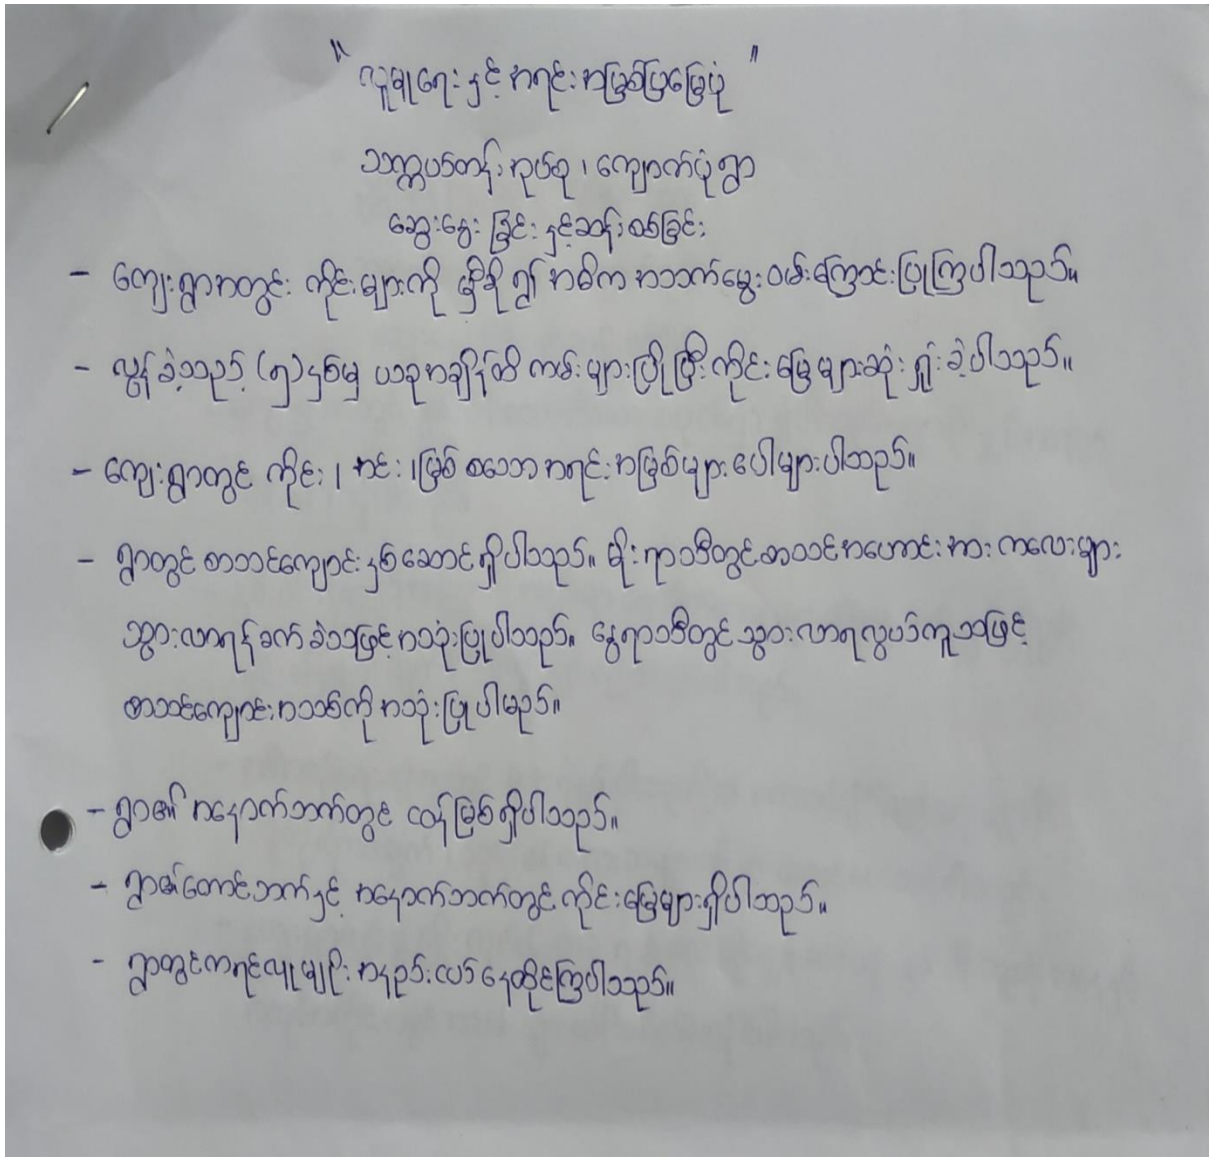 " လူမှုရေးနှင့် အရင်းအမြစ်ပြမြေပုံ "
သက္ကပင်တန်းအုပ်စု ၊ ကျောက်ပုံရွာ
ဆွေးနွေးခြင်းနှင့်ဆန်းစစ်ခြင်း
- ကျေးရွာအတွင်း ကိုင်းများကို မှီခို၍ အဓိက အသက်မွေးဝမ်းကြောင်းပြုကြပါသည်။
- လွန်ခဲ့သည့် (၅)နှစ်မှ ယခုအချိန်ထိ ကမ်းများပြိုပြီး ကိုင်းမြေများဆုံးရှုံးခဲ့ပါသည်။
- ကျေးရွာတွင် ကိုင်း ၊ အင်း ၊ မြစ် စသော အရင်းအမြစ်များ ပေါများပါသည်။
- ရွာတွင် စာသင်ကျောင်းနှစ်ဆောင်ရှိပါသည်။ မိုးရာသီတွင် စာသင်အဟောင်းအား ကလေးများ
သွားလာရန်ခက်ခဲသဖြင့် အသုံးပြုပါသည်။ နွေရာသီတွင် သွားလာရလွယ်ကူသဖြင့်
စာသင်ကျောင်းအသစ်ကို အသုံးပြုပါမည်။
- ရွာ၏ အနောက်ဘက်တွင် ငဝန်မြစ်ရှိပါသည်။
- ရွာ၏တောင်ဘက်နှင့် အနောက်ဘက်တွင် ကိုင်းမြေများရှိပါသည်။
- ရွာတွင်ကရင်လူမျိုး အနည်းငယ် နေထိုင်ကြပါသည်။